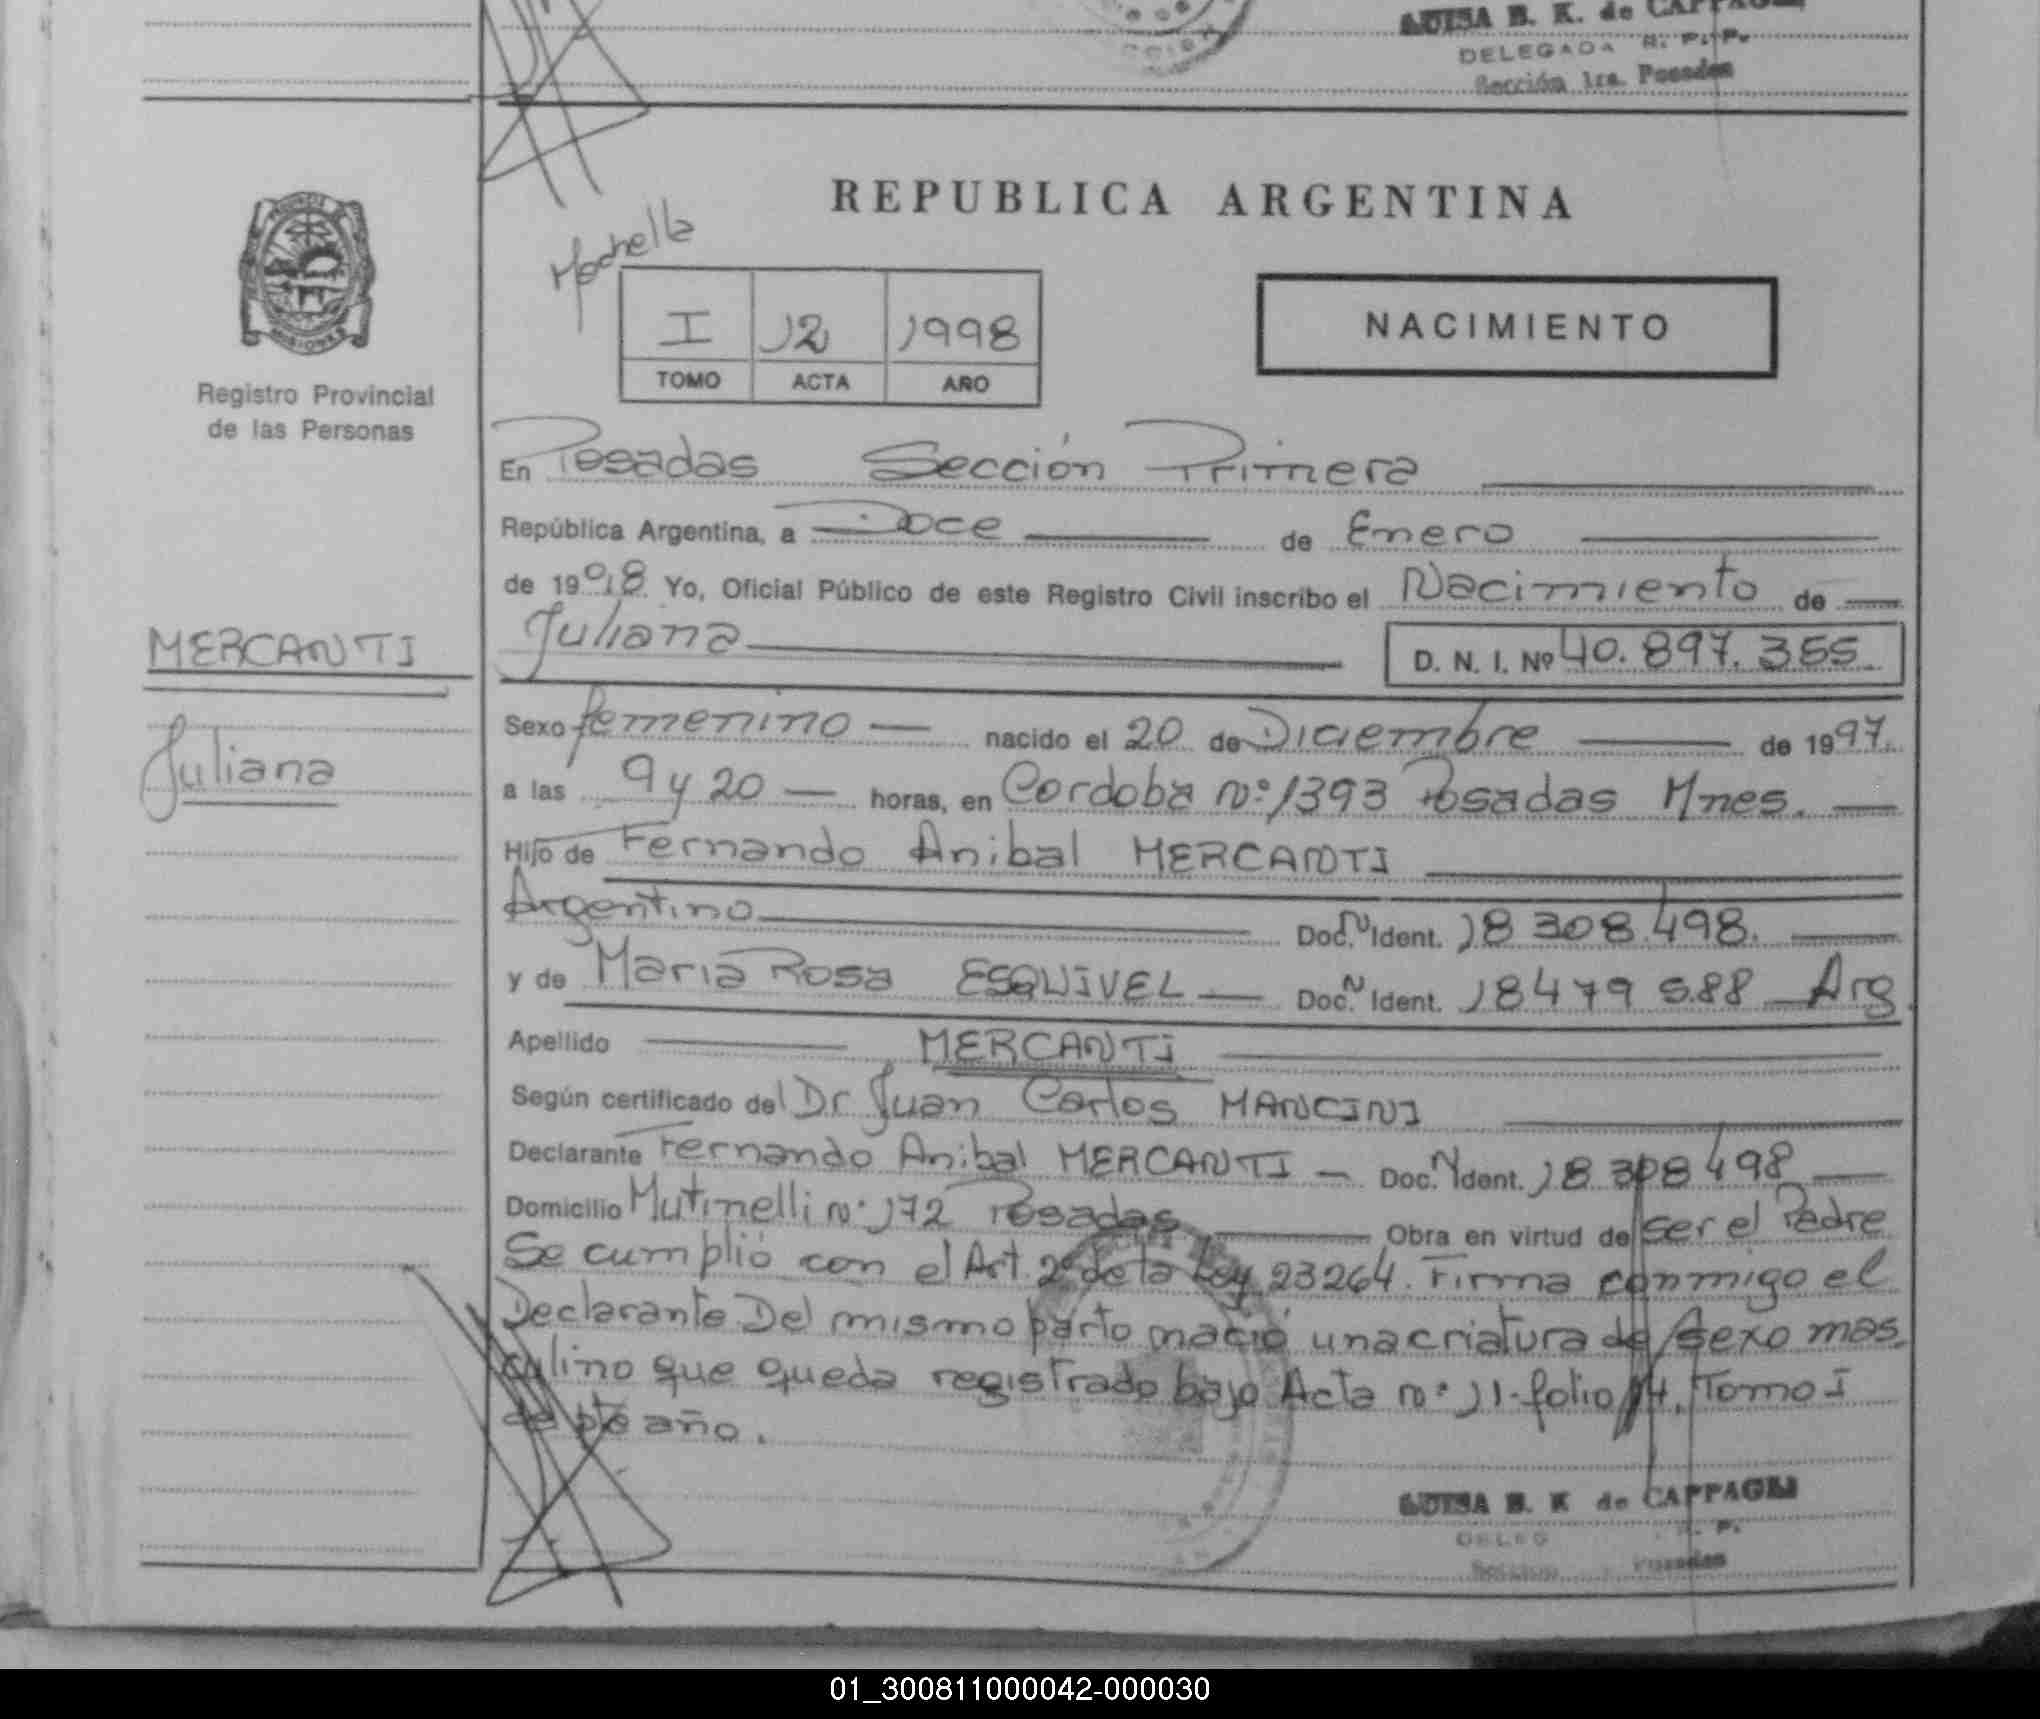 LUISA B. K. de CAPPAGLI
DELEGADA R. P. P.
Sección 1ra. Posadas
REPUBLICA ARGENTINA
I 12 1998
TOMO ACTA AÑO
NACIMIENTO
Registro Provincial
de las Personas
En Posadas Sección Primera
República Argentina, a Doce de Enero
de 1998 Yo, Oficial Público de este Registro Civil inscribo el Nacimiento de
MERCANTI
Juliana
Juliana D. N. I. Nº 40.897.355
Sexo femenino nacido el 20 de Diciembre de 1997.
a las 9 y 20 horas, en Cordoba nº 1393 Posadas Mnes.
Hijo de Fernando Anibal MERCANTI
Argentino Doc. N Ident. 18 308.498.
y de Maria Rosa ESQUIVEL Doc. N Ident. 18479 588 Arg
Apellido MERCANTI
Según certificado del Dr Juan Carlos MANCINI
Declarante Fernando Anibal MERCANTI Doc. N Ident. 18 308 498
Domicilio Mutinelli nº 172 Posadas Obra en virtud de ser el Padre
Se cumplió con el Art. 2º de la Ley 23264. Firma conmigo el
Declarante Del mismo parto nació una criatura de sexo mas
culino que queda registrado bajo Acta nº 11 folio Tomo I
de pte año.
LUISA B. K de CAPPAGLI
DELEG P.
Posadas
01_300811000042-000030